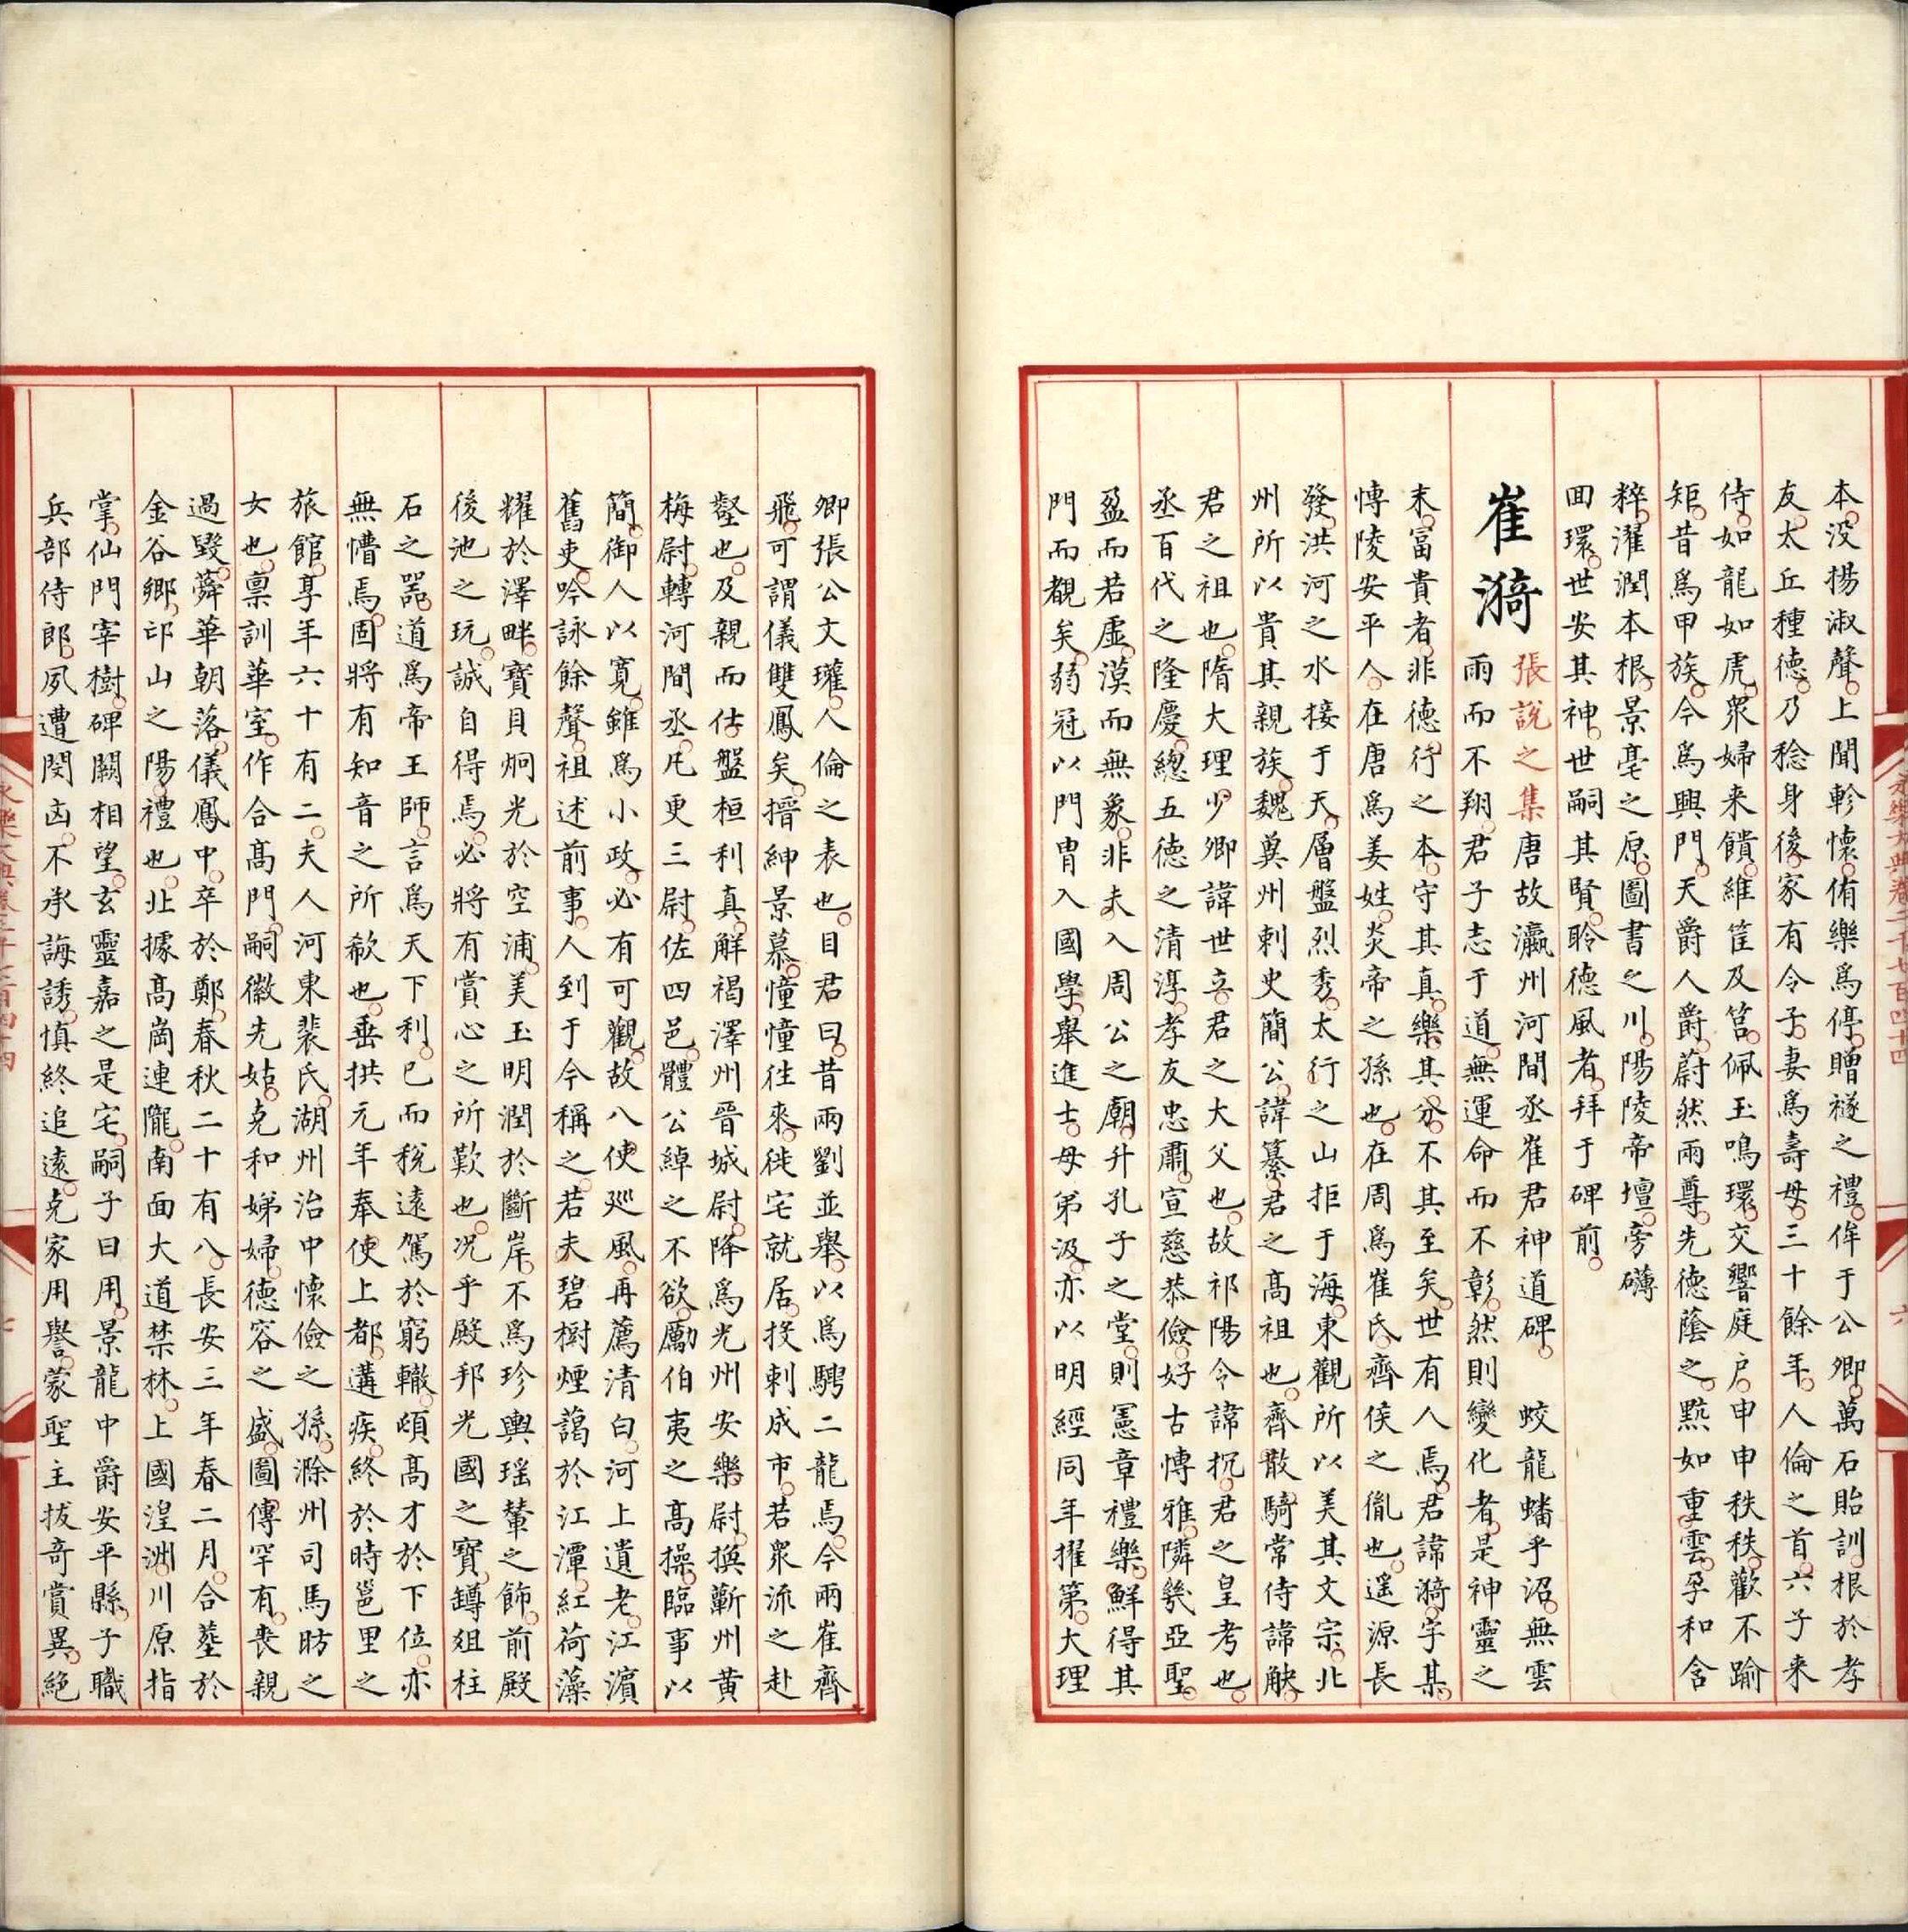 本没揚淑聲上聞軫懷侑樂爲停贈襚之禮侔于公卿萬石貽訓根於孝
友太丘種德乃稔身後家有令子妻爲壽母三十餘年人倫之首六子来
侍如龍如虎衆婦来饋維筐及筥佩玉鳴環交響庭户申申秩秩歡不踰
矩昔爲甲族今爲興門天爵人爵蔚然兩尊先德蔭之㸃如重雲孕和含
粹濯潤本根景亳之原圖書之川陽陵帝壇旁礴
囬環世安其神世嗣其賢聆德風者拜于碑前
崔漪
張說之集唐故瀛州河間丞崔君神道碑 蛟龍蟠乎沼無雲
雨而不翔君子志于道無運命而不彰然則變化者是神靈之
末富貴者非德行之本守其真樂其分不其至矣世有人焉君諱漪字某
愽陵安平人在唐爲姜姓炎帝之孫也在周爲崔氏齊侯之胤也遥源長
發洪河之水接于天層盤烈秀太行之山拒于海東觀所以美其文宗北
州所以貴其親族魏兾州刺史簡公諱纂君之髙祖也齊散騎常侍諱觖
君之祖也隋大理少卿諱世立君之大父也故祁陽令諱抗君之皇考也
丞百代之隆慶緫五徳之清淳孝友忠肅宣慈恭儉好古愽雅隣㡬亞聖
盈而若虛漠而無象非夫入周公之廟升孔子之堂則憲章禮樂鮮得其
門而覩矣弱冠以門胄入國學舉進士母弟汲亦以明經同年擢第大理
卿張公文瓘人倫之表也目君曰昔兩劉並舉以爲騁二龍焉今兩崔齊
飛可謂儀雙鳳矣搢紳景慕憧憧徃來徙宅就居投刺成市若衆流之赴
壑也及親而仕盤桓利真解褐澤州晉城尉降爲光州安樂尉換蘄州黄
梅尉轉河間丞凡更三尉佐四邑體公綽之不欲勵伯夷之髙操臨事以
簡御人以寛雖爲小政必有可觀故八使廵風再薦清白河上遺老江濵
舊吏吟詠餘聲祖述前事人到于今稱之若夫碧樹煙藹於江潭紅荷藻
耀於澤畔寳貝炯光於空浦美玉明潤於斷岸不爲珍輿瑶輦之飾前殿
後池之玩誠自得焉必將有賞心之所歎也况乎殿邦光國之寳罇俎柱
石之噐道爲帝王師言爲天下利已而稅遠駕於窮轍頫髙才於下位亦
無慒焉固將有知音之所欷也垂拱元年奉使上都遘疾終於時邕里之
旅館享年六十有二夫人河東裴氏湖州治中懷儉之孫滁州司馬昉之
女也禀訓華室作合髙門嗣徽先姑克和娣婦德容之盛圖傳罕有丧親
過毀蕣華朝落儀鳳中卒於鄭春秋二十有八長安三年春二月合塟於
金谷鄉邙山之陽禮也北據髙崗連隴南面大道禁林上國湟洲川原指
掌仙門宰樹碑闕相望玄靈嘉之是宅嗣子曰用景龍中爵安平縣子職
兵部侍郎夙遭閔凶不承誨誘慎終追遠克家用譽蒙聖主拔竒賞異絶